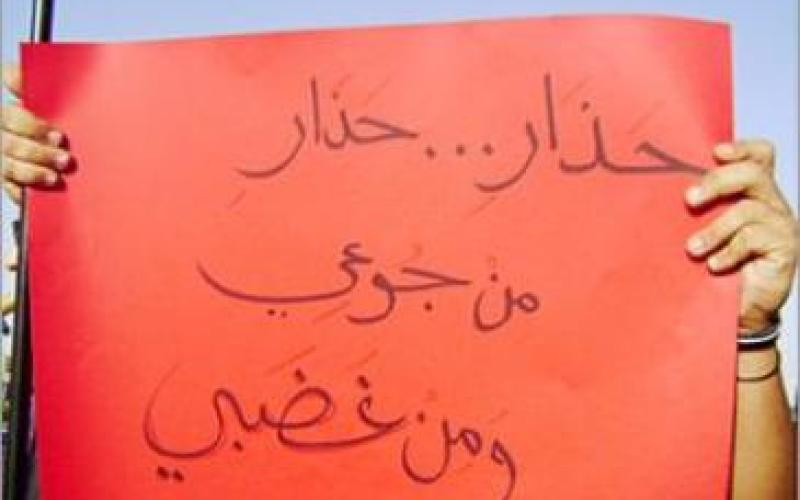 حَذَارِ... حَذارِ
مِنْ جُوعِي
وَمِنْ غَضَبِي